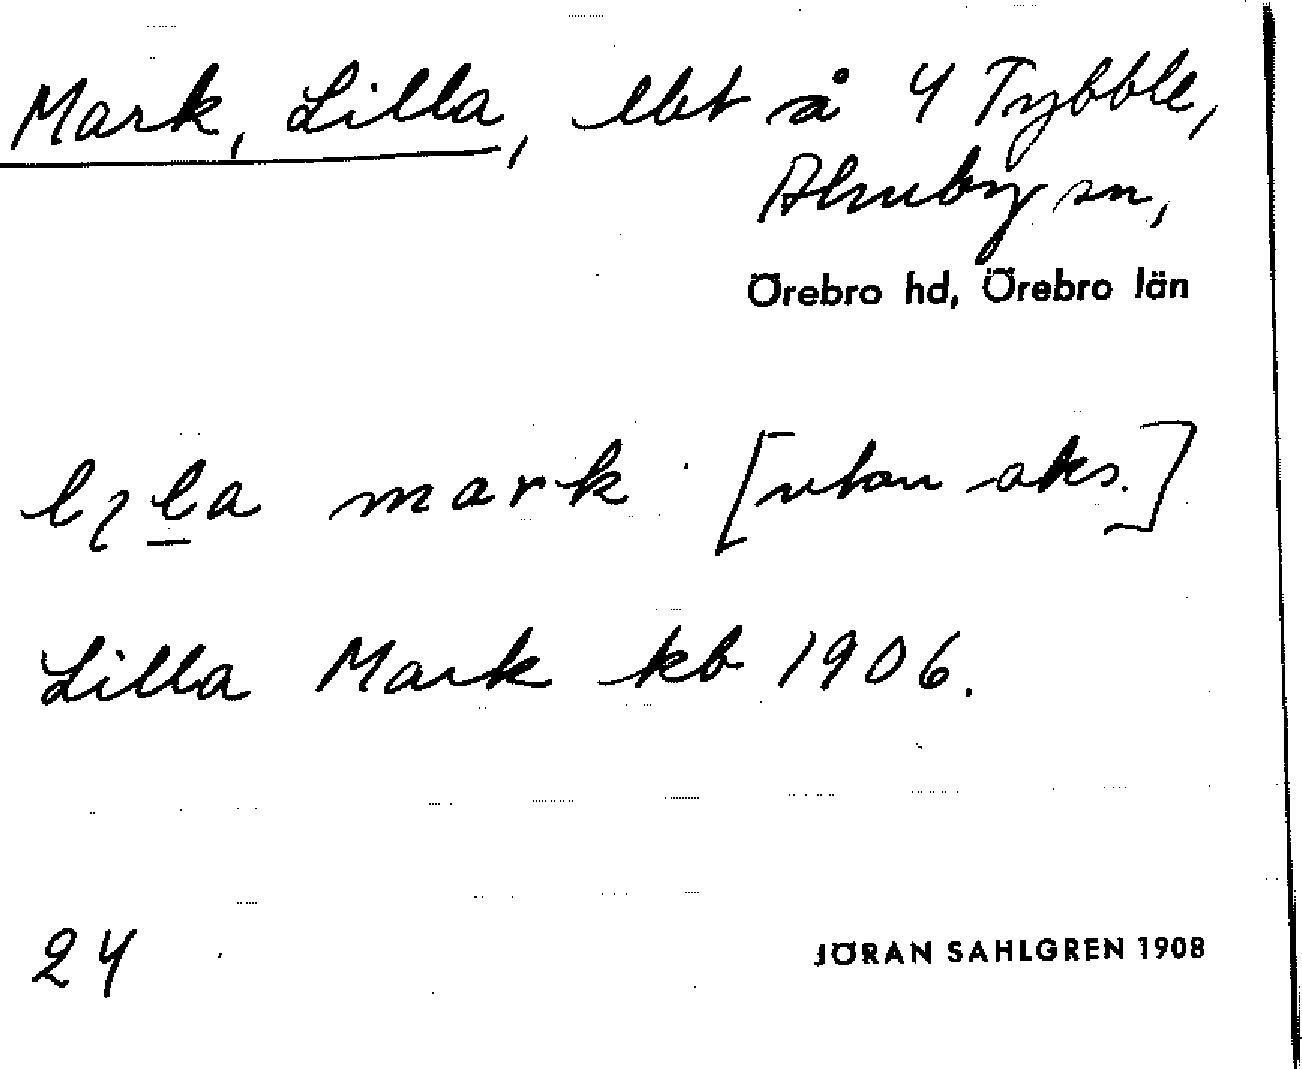 Mark, Lilla, lbt å 4 Tybble,
Almby sn,
Örebro hd, Örebro län
mark [utan aks.]
Lilla Mark kb 1906.
24
JÖRAN SAHLGREN 1908